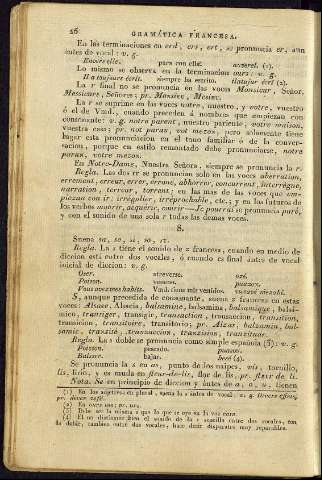 26
GRAMÁTICA FRANCESA.
En las terminaciones en erd, ers, ert, se pronuncia er, aun
antes de vocal: v. g.
Envers elle. para con ella: anverel. (1).
Lo mismo se observa en la terminacion ours: v. g.
Il a toujours écrit. siempre ha escrito. (2)
La r final no se pronuncia en las voces Monsieur, Señor,
Messieurs, Señores; pr.
La r se suprime en las voces notre, nuestro, y votre, vuestro
ó el de Vmd., cuando preceden á nombres que empiezan con
consonante: v. g. notre parent, nuestro pariente; votre maison,
vuestra casa: pr. not paran, vot mezon, pero solamente tiene
lugar esta pronunciacion en el tono familiar ó de la conver-
sacion, porque en estilo remontado debe pronunciarse, notre
paran, votre mezon.
En Notre-Dame, Nuestra Señora, siempre se pronuncia la r.
Regla. Las dos rr se pronuncian solo en las voces aberration,
errement, erreur, errer, errone, abhorrer, concurrent, interrègne,
narration, terreur, torrent; en las mas de las voces que em-
piezan con ir: irregulier, irreprochable, etc.; y en los futuros de
los verbos mourir, aquérir, courir—Je pourrai se pronuncia puré,
y con el sonido de una sola r todas las demas voces.
S.
Suena
Regla. La s tiene el sonido de z francesa, cuando en medio de
diccion está entre dos vocales, ó cuando es final ántes de vocal
inicial de diccion: v. g.
Oser. atreverse. ozé.
Poison. veneno. puazon.
Vous avez vos habits. Vmd. tiene sus vestidos.
S, aunque precedida de consonante, suena z francesa en estas
voces: Alsace, Alsacia, balsamine, balsamina, balsamique, balsá-
mico, transiger, transigir, transaction, transaccion, transition,
transicion, transitoire, transitorio; pr. Alzas, balzamin, bal-
zamic, tranzigé, tranzaccion, tranzicion, tranzituar.
Regla. La s doble se pronuncia como simple española (3): v. g.
Poisson. pescado. puason.
Baisser. bajar. besé (4).
Se pronuncia la s en as, punto de los naipes, vis, tornillo,
lis, lirio, y es muda en fleur-de-lis, flor de lis, pr. fleur de li.
Nota. Se en principio de diccion y ántes de a, o, u, tienen
(1) En los adjetivos en plural, suena la s antes de vocal: v. g. Divers effets,
pr.
(2) En ours
(3) Debe ser la misma s que la que se oye en la voz
(4) El no distinguir bien el sonido de la s sencilla entre dos vocales, con
la doble, tambien entre dos vocales, hace decir disparates muy reparables.